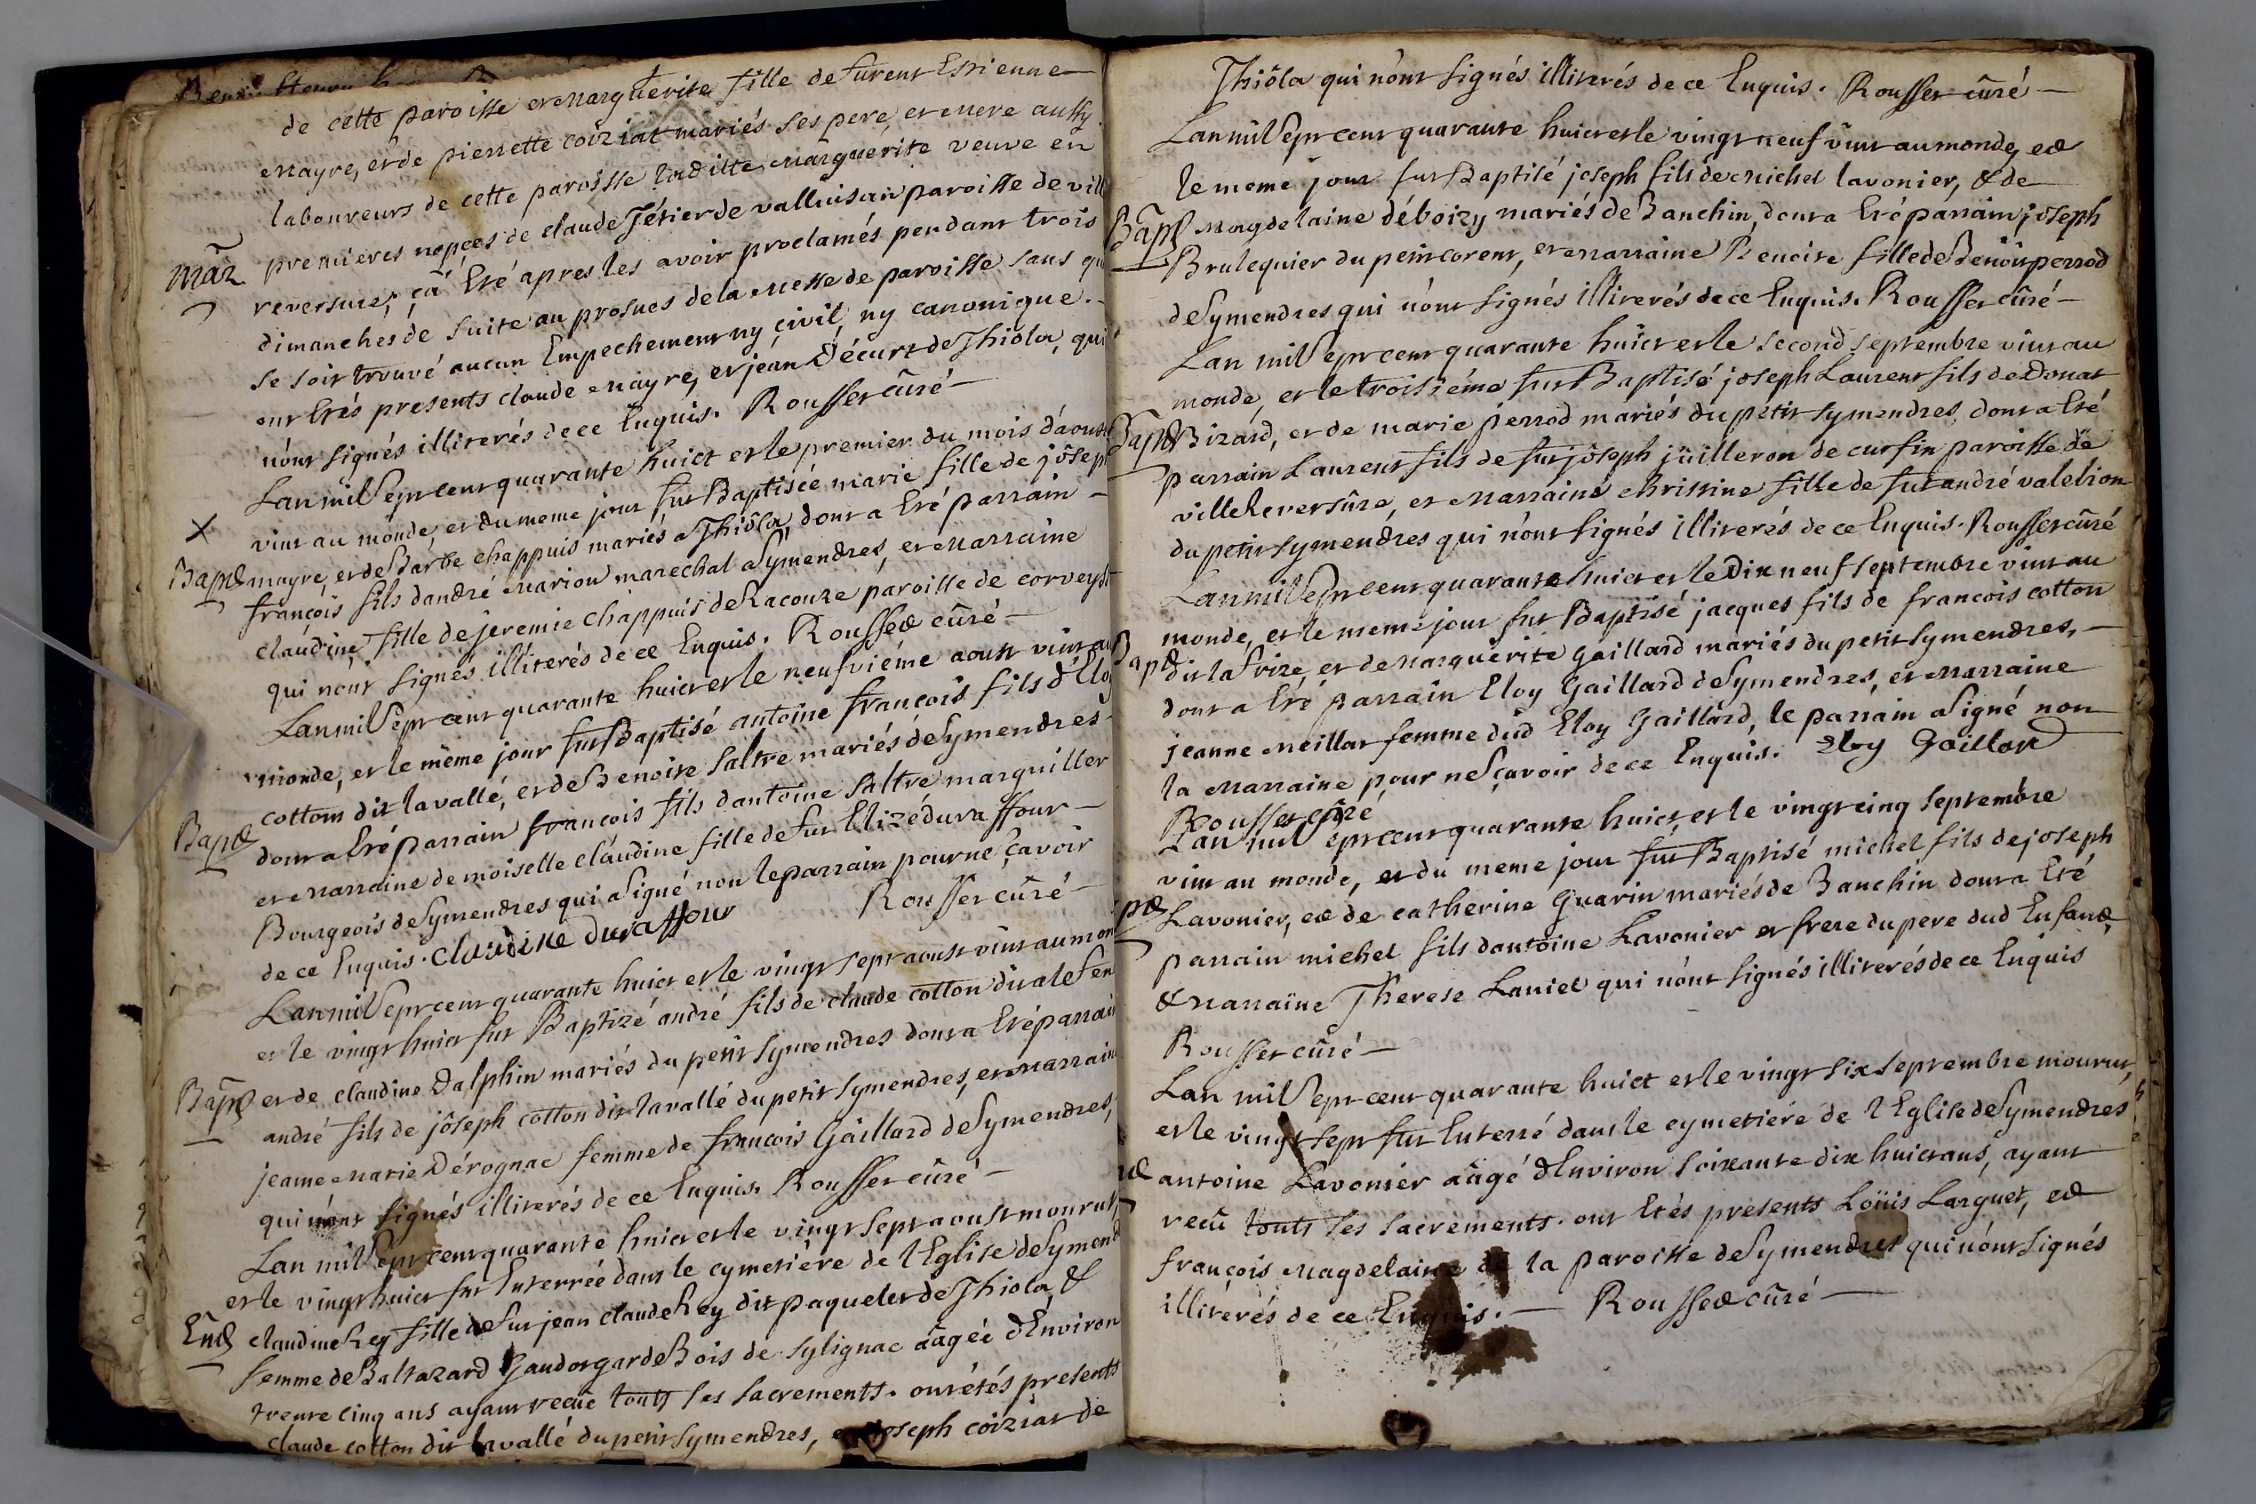 de cette paroisse et marguerite fille de furent Estienne
mayre, et de pierrette coiziat mariés ses pere, et mere aussy
laboureurs de cette paroisse laditte marguerite veuve en
premieres nopces de claude Tétier de valluisan paroisse de vill
mãr reversure, çà Eté apres les avoir proclamés pendant trois
dimanches de suite au prosnes de la messe de paroisse sans qu
se soit trouvé aucun Empechement ny civil, ny canonique.
ont Etés presents claude mayre, et jean Décurt de Thiola, qui
n'ont signés illiterés de ce Enquis. Rousset curé
Lan mil Sept cent quarante huict et le premier du mois d'aoust
X vint au monde, et du meme jour fut Baptisée marie fille de joseph
Bapt mayre, et de Barbe chappuis mariés a Thiola, dont a Eté parrain
françois fils d'andré marion marechal a Symendres, et marraine
claudine fille de jeremie chappuis de Lacoure paroisse de corveys
qui n'ont signés illiterés de ce Enquis. Rousset curé
Lan mil Sept cent quarante huict et le neufviéme aoust vint au
monde, et le même jour fut Baptisé antoine françois fils d'Eloy
cottom dit lavallé, et de Benoite saltre mariés de Symendres
Bapt dont a Eté parrain françois fils d'antoine saltre marguiller
et marraine demoiselle claudine fille de fut Elizé duraffour
Bourgeois de Symendres qui a signé non le parrain pour ne sçavoir
de ce Enquis. claudine duraffour Rousset curé
Lan mil Sept cent quarante huict et le vingt sept aoust vint au mon
et le vingt huict fut Baptizé andré fils de claude cotton dit
Bapt et de claudine Dalphin mariés du petit Symendres dont a Eté parrain
andré fils de joseph cotton dit lavallé du petit Symendres, et marraine
jeanne marie Dérognac femme de françois Gaillard de Symendres,
qui n'ont signés illiterés de ce Enquis. Rousset curé
Lan mil Sept cent quarante huict et le vingt sept aoust mourut,
et le vingt huict fut Enterrée dans le cymetiére de l'Eglise de Symend
Ent claudine Rey fille de fut jean claude Rey dit paquelet de Thiola, &
femme de Baltazard Gaudot garde Bois de Sylignac aagée d'Environ
trente cinq ans ayant recüe touts ses sacrements. ont étés presents
claude cotton dit lavallé du petit Symendres, et joseph coiziat de
Thiola qui n'ont signés illiterés de ce Enquis. Rousset curé
Lan mil Sept cent quarante huict et le vingt neuf vint au monde, et
le meme jour fut Baptisé joseph fils de michel lavonier, & de
Bapt magdelaine déboizy mariés de Banchin, dont a Eté parrain joseph
Brulequier du petit corent, et marraine Benoite fille de Benoit perrod
de Symendres qui n'ont signés illiterés de ce Enquis. Rousset curé
Lan mil Sept cent quarante huict et le second septembre vint au
monde, et le troisiéme fut Baptisé joseph Laurent fils de Donat
Bapt Bizard, et de marie perrod mariés du petit symendres dont a Eté
parrain Laurent fils de fut joseph juilleron de curfin paroisse de
ville Reversure, et marraine christine fille de fut andré valelion
du petit symendres qui n'ont signés illiterés de ce Enquis. Rousset curé
Lan mil Sept cent quarante huict et le Dix neuf septembre vint au
monde, et le meme jour fut Baptisé jacques fils de francois cotton
Bapt dit la frize, et de marguerite gaillard mariés du petit symendres,
dont a Eté parrain Eloy Gaillard de Symendres, et marraine
jeanne meillat femme dud Eloy Gaillard, le parrain a signé non
la marraine pour ne sçavoir de ce Enquis. Eloy Gaillard
Rousset curé
Lan mil Sept cent quarante huict et le vingt cinq septembre
vint au monde, et du meme jour fut Baptisé michel fils de joseph
pt Lavonier, et de catherine Guarin mariés de Banchin dont a Eté
parrain michel fils d'antoine Lavonier et frere du pere dud Enfant,
& marraine Therese Laniel qui n'ont signés illiterés de ce Enquis
Rousset curé
Lan mil Sept cent quarante huict et le vingt six septembre mourut,
et le vingt sept fut Enterré dans le cymetiere de l'Eglise de Symendres
antoine Lavonier aagé d'Environ soixante dix huict ans, ayant
recû touts ses sacrements. ont Etés presents Loüis Larguet, et
françois magdelaine de la paroisse de Symendres qui n'ont signés
illiterés de ce Enquis. Rousset curé